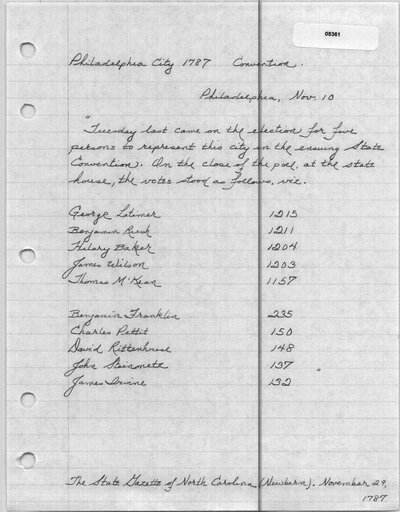 05361
Philadelphia City 1787 Convention.
Philadelphia, Nov. 10
"Tuesday last came on the election for five
persons to represent this city in the ensuing State
Convention. On the close of the poll, at the state
house, the votes stood as follows, viz.
George Latimer 1215
Benjamin Rush 1211
Hilary Baker 1204
James Wilson 1203
Thomas M'Kean 1157
Benjamin Franklin 235
Charles Pettit 150
David Rittenhouse 148
John Steinmetz 137 "
James Irvine 132
The State Gazette of North Carolina (Newbern). November 29,
1787.